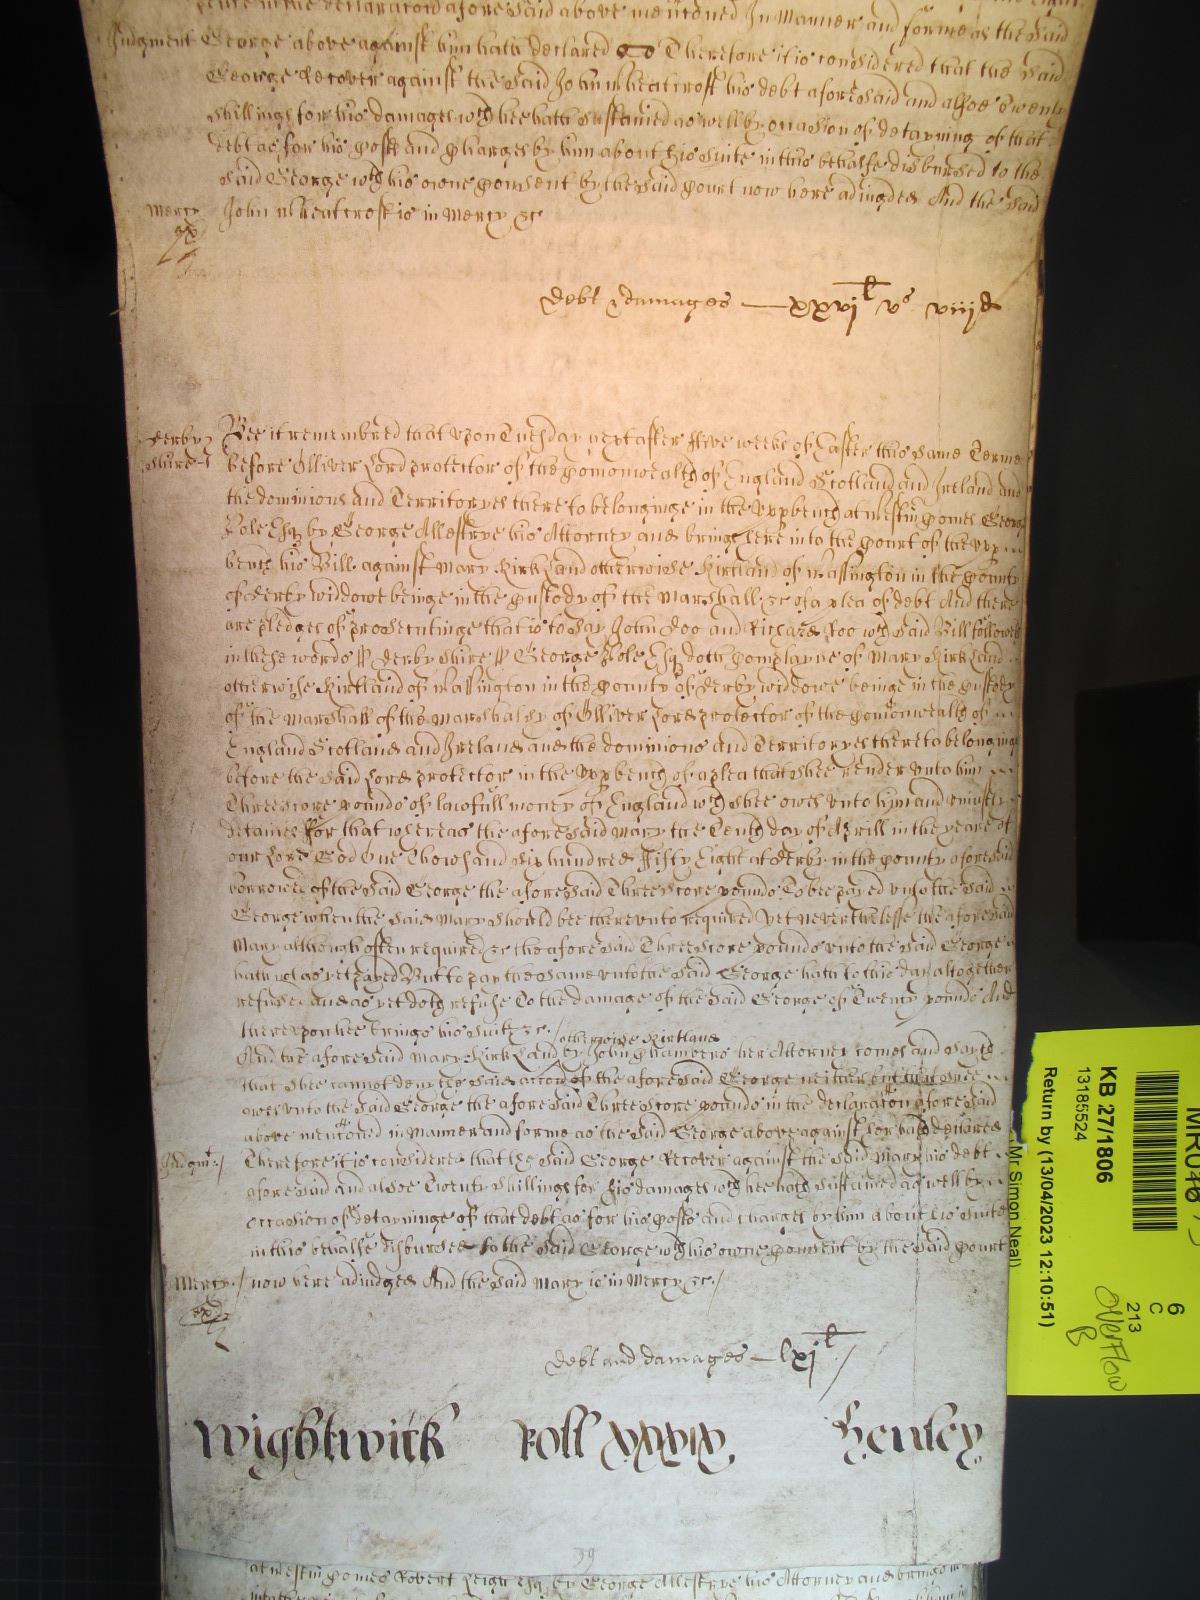 in the declaracon aforesaid above mencōned In Manner and forme as the said
Judgment George above against him hath declared Therefore it is considered that the said
George Recover against the said John Wheatcroft his debt aforesaid and alsoe Twenty
shillings for his damages wch hee hath sustained as well by occasion of detayning of that
debt as for his Costs and Charges by him about his suite in this behalfe disbursed to the
said George wth his owne Consent by the said Court now here adiudged And the said
Mercy John Wheatcroft is in Mercy &c
Debt & damages — xxvjl vs viijd
Derby Bee it remembred that vpon Tuesday next after ffive weeks of Easter this same Terme
shire before Olliver Lord protector of the Comonwealth of England Scotland and Ireland and
the dominions and Territoryes there to belonginge in the Vpp bench at Westm̄ Comes George
Pole Esq by George Allestrye his Attorney and brings here into the Court of the vpp
bench his Bill against Mary Kirkland otherwise Kirtland of Wassington in the County
of Derby widdowe beinge in the Custody of the Marshall &c of a plea of debt And there
are pledges of prosecutinge that is to say John Doo and Richard Roo wch said Bill followeth
in these words // Derbyshire // George Pole Esq doth Complayne of Mary Kirkland
otherwise Kirtland of Wassington in the County of Derby widdowe beinge in the Custody
of the Marshall of the Marshalsy of Olliver Lord protector of the Comonwealth of
England Scotland and Ireland and the dominions and Territoryes thereto belonginge
before the said Lord protector in the Vpp bench of a plea that shee render vnto him
Threescore pounds of lawfull money of England wch shee owes vnto him and vniustly
detaines For that whereas the aforesaid Mary the Tenth day of Aprill in the yeare of
our Lord God One Thowsand six hundred ffifty Eight at Derby in the County aforesaid
borrowed of the said George the aforesaid Threescore pounds To bee payed vnto the said
George when the said Mary should bee therevnto required Yet neverthelesse the aforesaid
Mary although often required &c the aforesaid Threescore pounds vnto the said George
hath not as yet payed But to pay the same vnto the said George hath to this day altogether
refused and as yet doth refuse To the damage of the said George of Twenty pounds And
therevpon hee brings his suite &c /
otherwise Kirtland
And the aforesaid Mary Kirkland by John Chambers her Attorney comes and sayth
that shee cannot deny the said accon of the aforesaid George neither but that shee
owes vnto the said George the aforesaid Threescore pounds in the declaracon aforesaid
above mencōned in Manner and forme as the said George above against her hath declared
Judgmt / Therefore it is considered that the said George Recover against the said Mary his debt
aforesaid and alsoe Twenty shillings for his damages wch hee hath sustained as well by
occasion of detayninge of that debt as for his Costs and Charges by him about his suite
in this behalfe disbursed to the said George wth his owne Consent by the said Court
Mercy / now here adiudged And the said Mary is in Mercy &c /
Debt and damages — lxjl /
Wightwick Roll xxxix Henley
39
at westm̄ Comes Robert Leigh Esq by George Allestrye his Attorney and brings
KB 27/1806
13185524
Return by (13/04/2023 12:10:51)
Mr Simon Neal)
6
C
213
Overflow
B